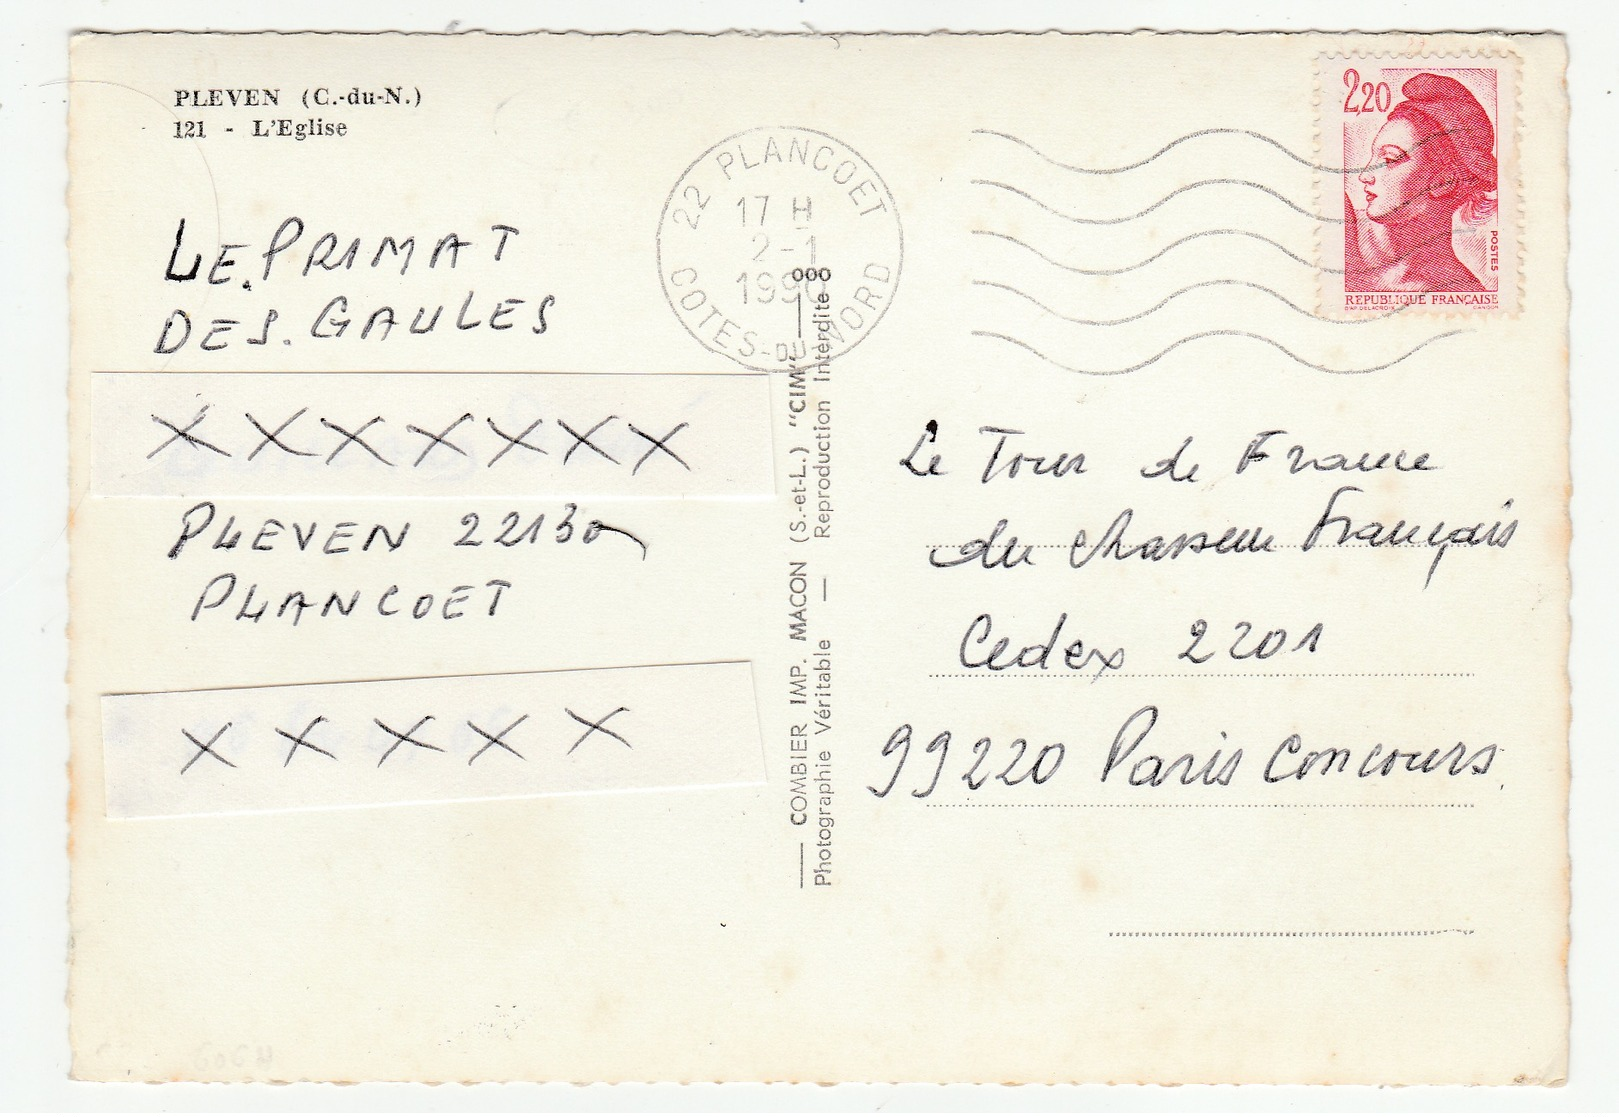 PLEVEN (C.-du-N.)
121 - L'Eglise
LE. PRIMAT
DES. GAULES
X X X X X X X
PLEVEN 22130
PLANCOET
X X X X X
22 PLANCOET
17 H
2-1
1990
COTES-DU-NORD
COMBIER IMP. MACON (S.-et-L.) "CIM"
Photographie Véritable — Reproduction Interdite
2,20
POSTES
REPUBLIQUE FRANÇAISE
Le Tour de France
du Chasseur Français
Cedex 2201
99220 Paris Concours.